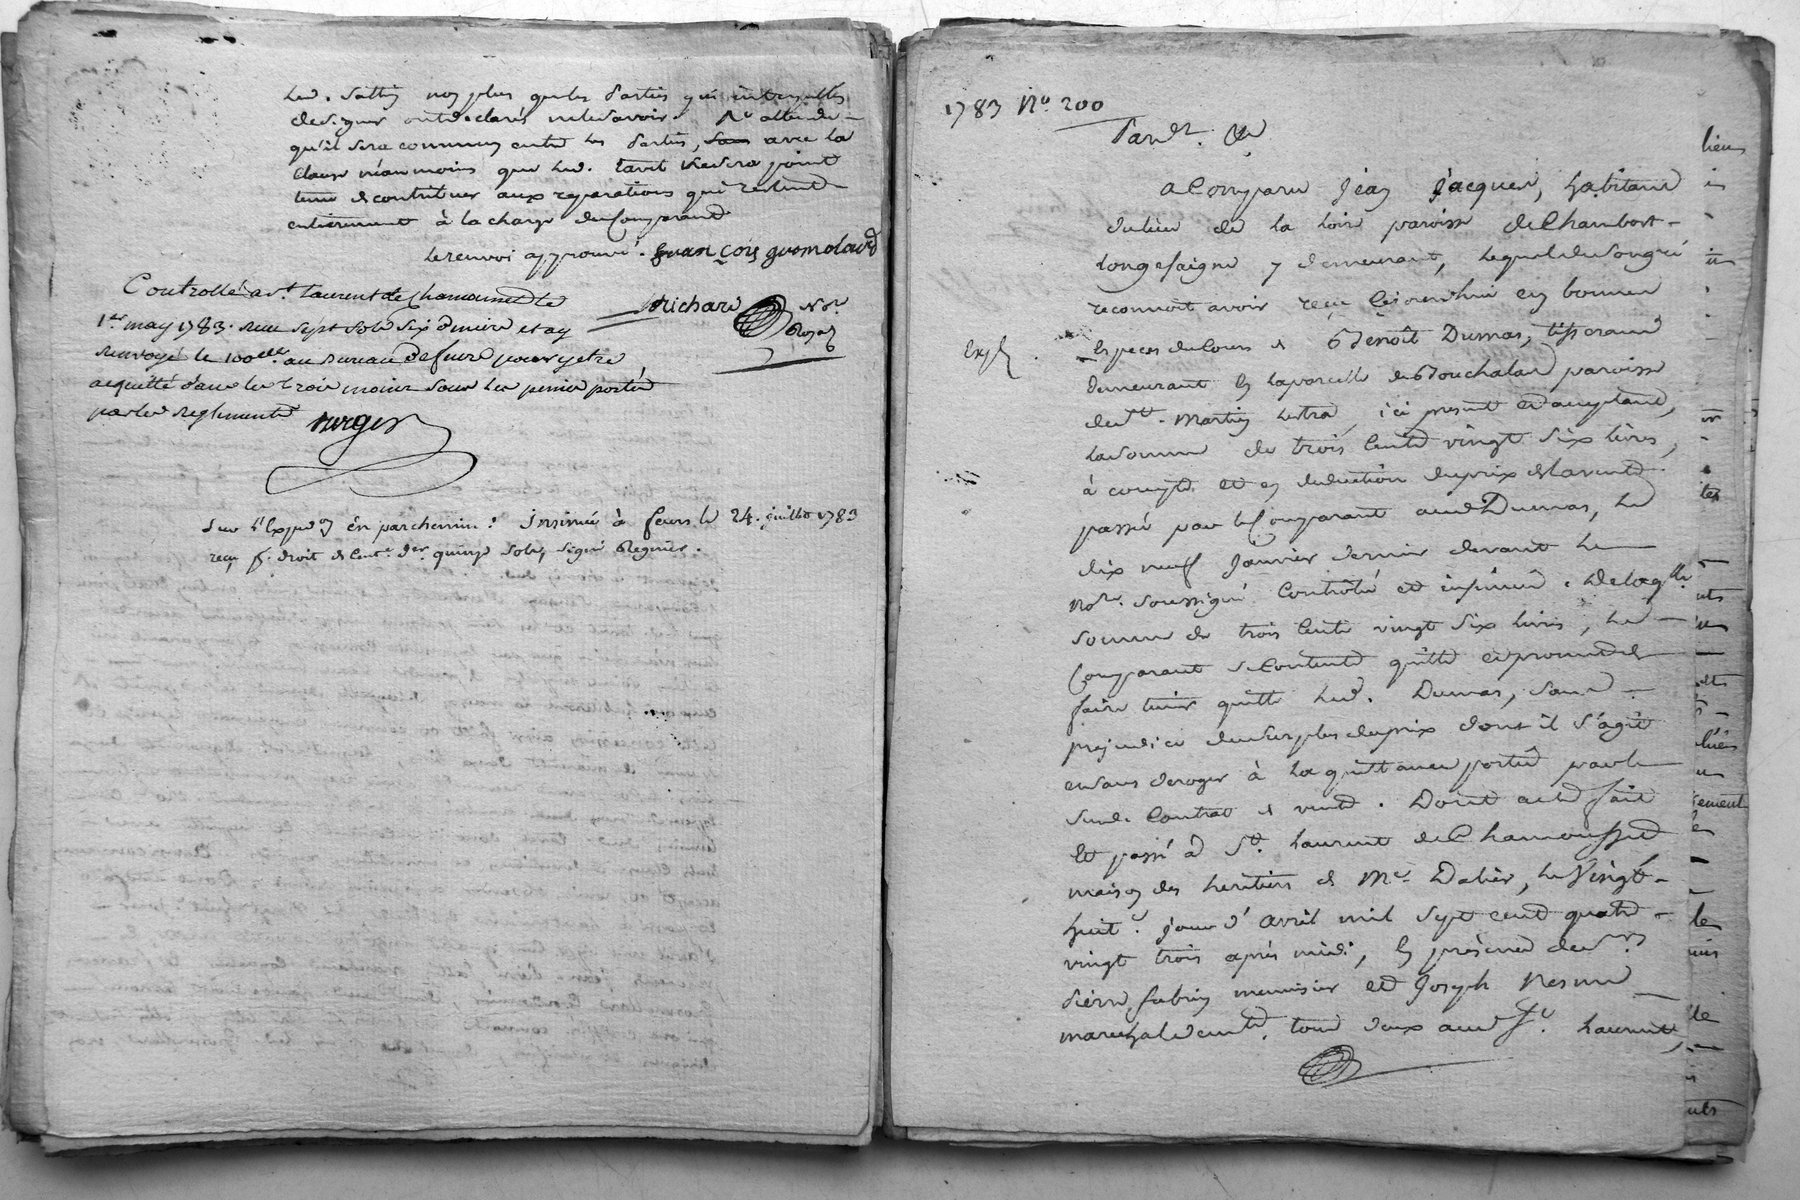 led. Sattin non plus que les Parties qui interpellés
de signer ont déclarés ne le savoir. Au
qu'il sera commun entre les Parties, avec la
clause néanmoins que led. tavit ne sera point
tenu de contribuer aux reparations qui restent
entierement à la charge du Comparant
le renvoi approuvé. françois
Richard Nore Royal
Controllé a st. laurent de Chamousset le
1er may 1783. reçu sept sols six deniers et ay
renvoyé le 100eme au Bureau de feurs pour y etre
acquitté dans les trois mois sous les peines portées
par les Reglements
Sur l'Expedon en parchemin: Insinué à feurs le 24. juillet 1783
reçu pr. droit de Cente. der. quinze sols, signé Regnier.
1783 No. 200
Pardt. &c
a Comparu Jean Jacques, habitant
du lieu de la loire paroisse de Chambost-
longesaigne y demeurant, lequel de son gré
reconnoit avoir reçu cejourd'hui en bonnes
Exp
Especes de Cours de Benoît Dumas, tisserand
demeurant en la parcelle de Bouchalas paroisse
de st. Martin lestra, ici present et acceptant,
la somme de trois Cents vingt six livres,
à compte et en deduction du prix de la vente
passée par le Comparant aud. Dumas, le
dix neuf Janvier dernier devant le
Nore. soussigné Contrôlée et insinuée. De laqlle.
somme de trois Cents vingt six livres, le
Comparant se Contente quitte et promet de
faire tenir quitte led. Dumas, sans
prejudice du surplus du prix dont il s'agit
et sans deroger à la quittance portée par le
susd. Contrat de vente. Dont acte fait
Et passé à St. Laurent de Chamousset
maison des heritiers de Me Dalier, le Vingt
huite. jour d'avril mil sept cent quatre
vingt trois après midi, En présence de srs.
Pierre fabrin menuisier et Joseph Nesme
marechal tous deux aud. St. Laurent,